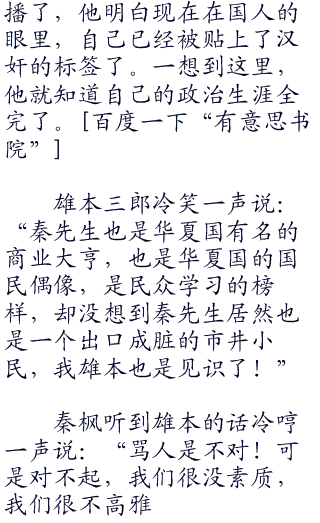 播了，他明白现在在国人的
眼里，自己已经被贴上了汉
奸的标签了。一想到这里，
他就知道自己的政治生涯全
完了。[百度一下“有意思书
院”]
雄本三郎冷笑一声说：
“秦先生也是华夏国有名的
商业大亨，也是华夏国的国
民偶像，是民众学习的榜
样，却没想到秦先生居然也
是一个出口成脏的市井小
民，我雄本也是见识了！”
秦枫听到雄本的话冷哼
一声说：“骂人是不对！可
是对不起，我们很没素质，
我们很不高雅